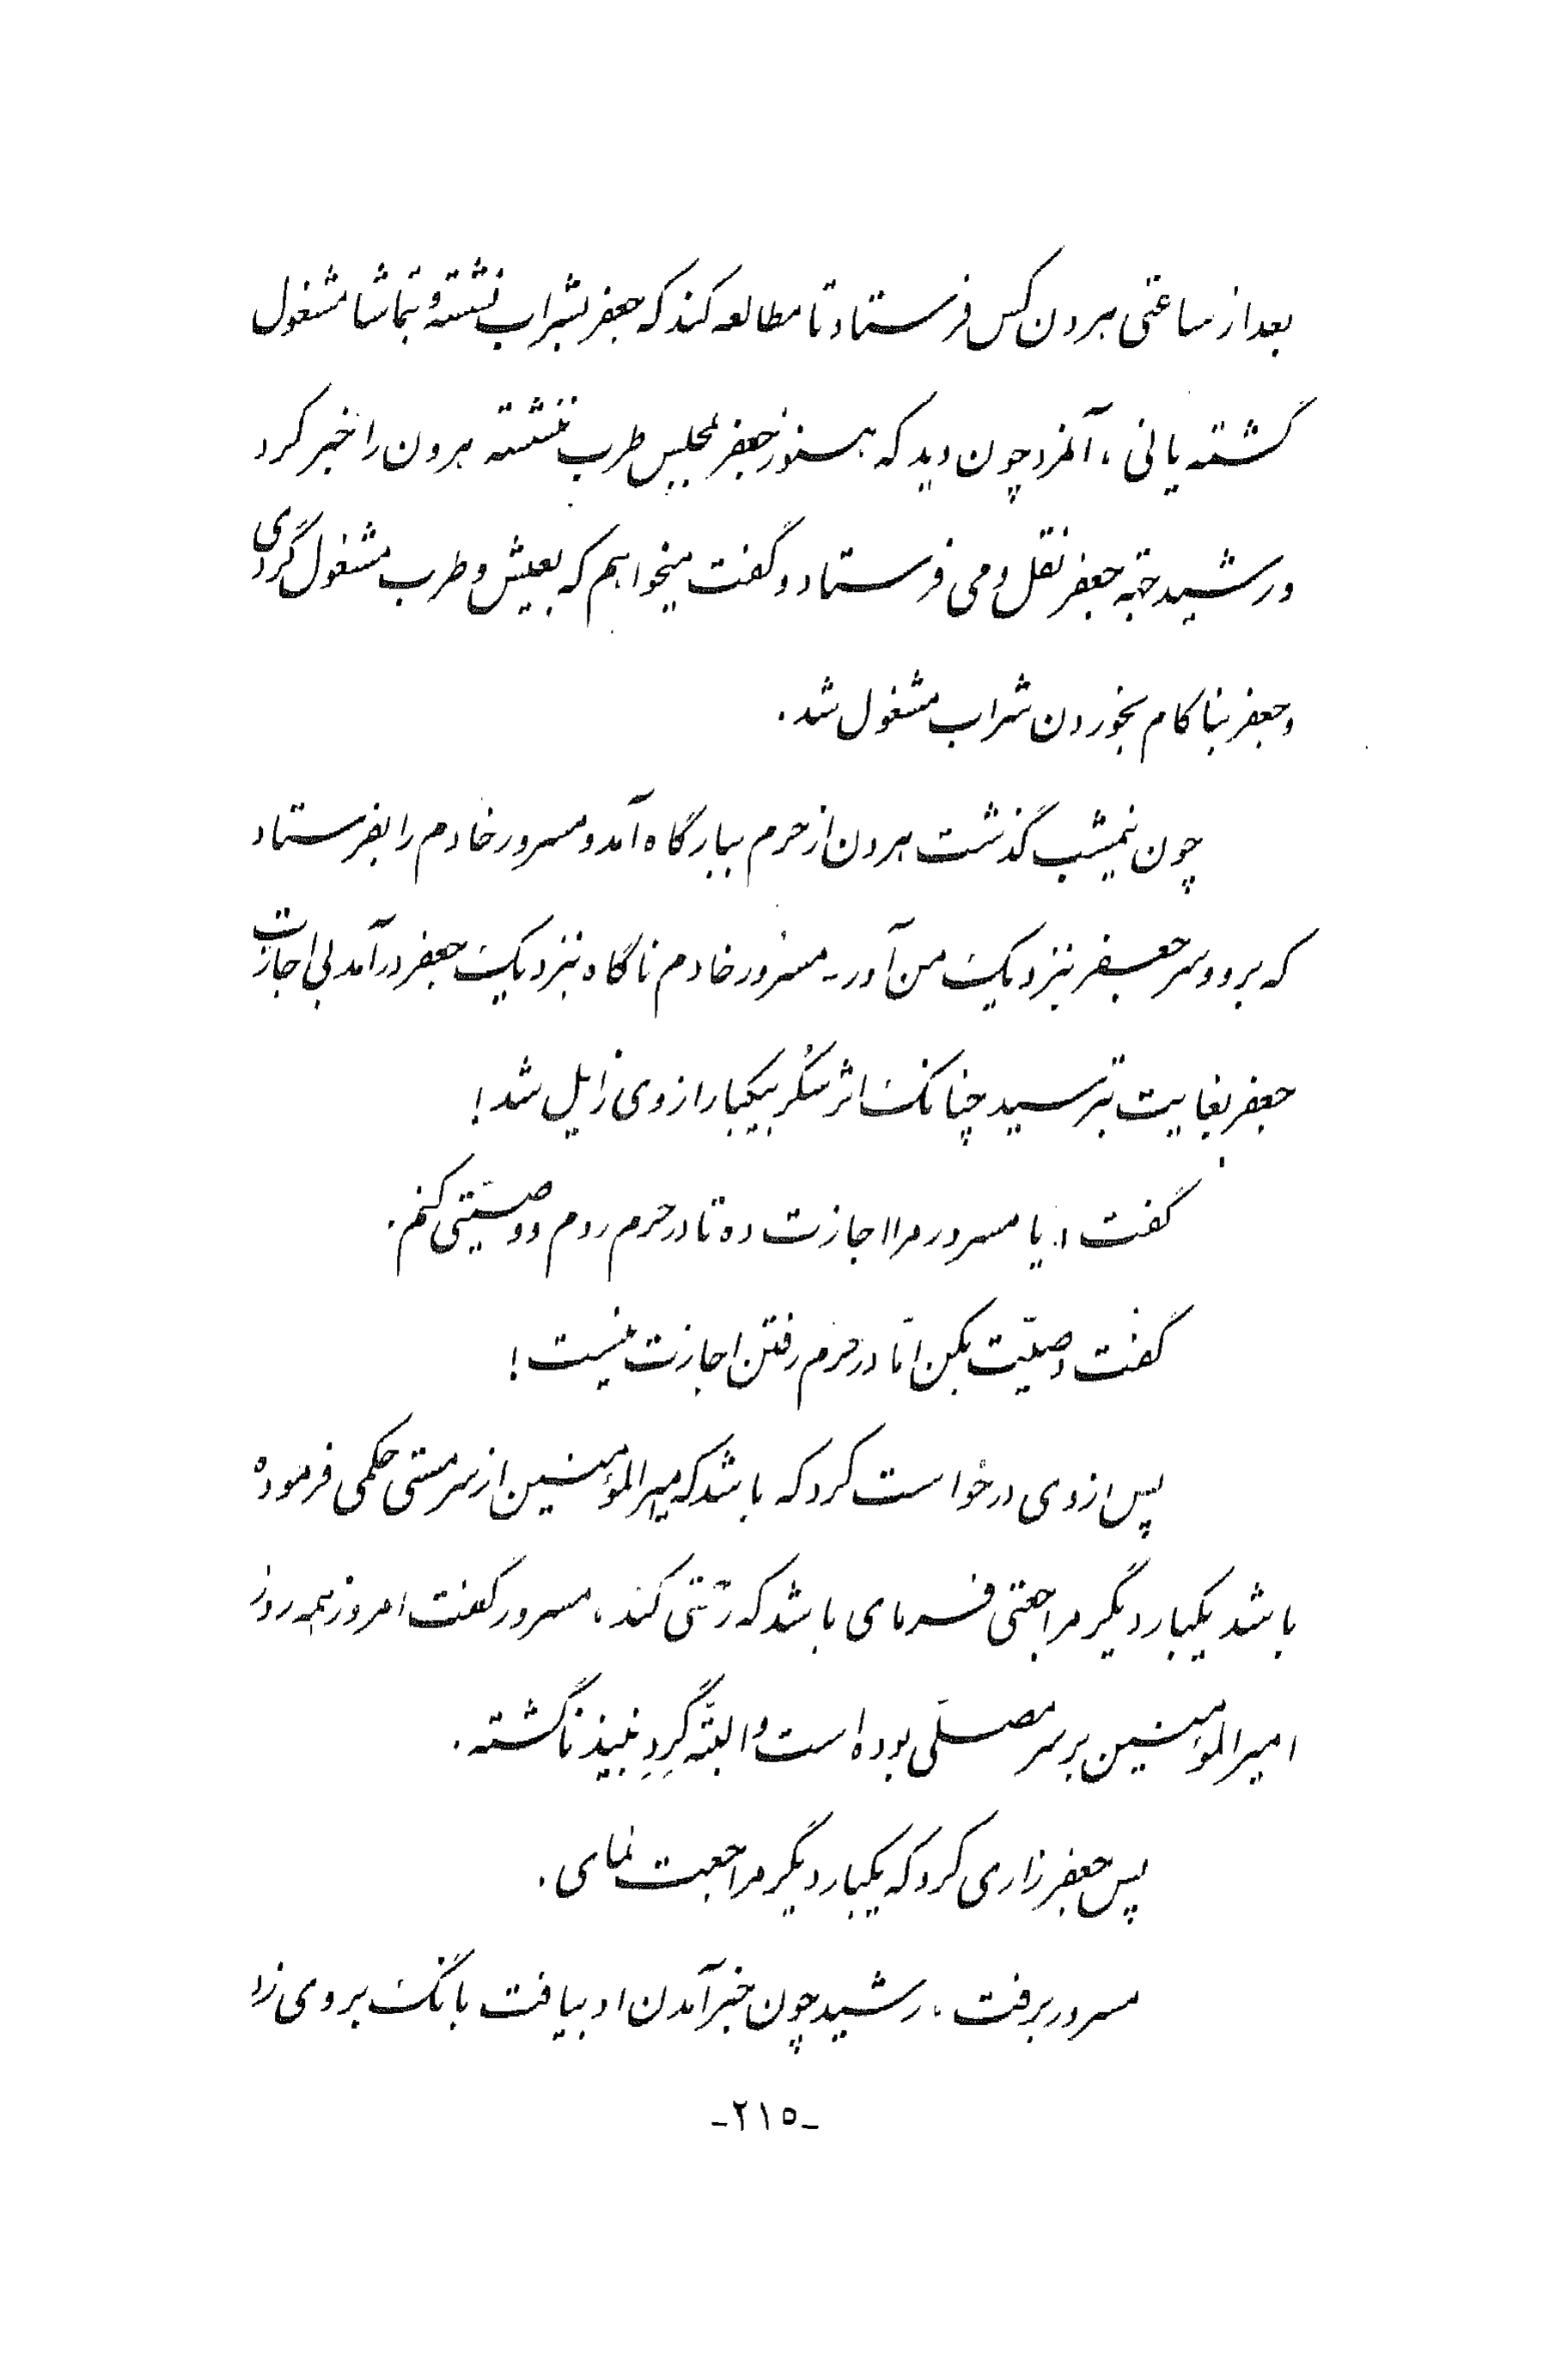 بعد از ساعتی هرون کس فرستاد تا مطالعه کند که جعفر بشراب نشسته و بتماشا مشغول
گشته یا نی ، آنمرد چون دید که هنوز جعفر بمجلس طرب ننشسته هرون را خبر کرد
و رشید جهة جعفر نقل و می فرستاد و گفت میخواهم که بعیش و طرب مشغول گردی
و جعفر بناکام بخوردن شراب مشغول شد .
چون نیمشب گذشت هرون از حرم ببارگاه آمد و مسرور خادم را بفرستاد
که برو و سر جعفر بنزدیک من آور - مسرور خادم ناگاه بنزدیک جعفر درآمد بی اجازت
جعفر بغایت بترسید چنانک اثر سُکر بیکبار از وی زایل شد !
گفت : یا مسرور مرا اجازت ده تا در حرم روم و وصیّتی کنم .
گفت وصیّت بکن امّا در حرم رفتن اجازت نیست !
پس از وی درخواست کرد که باشد که امیرالمؤمنین از سر مستی حکمی فرموده
باشد یکبار دیگر مراجعتی فرمای باشد که رقّتی کند ، مسرور گفت امروز همه روز
امیرالمؤمنین بر سر مصلّی بوده است و البتّه گِردِ نبیذ ناگشته .
پس جعفر زاری کرد که یکبار دیگر مراجعت نمای .
مسرور برفت ، رشید چون خبر آمدن او بیافت بانگ بروی زد
-۲۱۵-